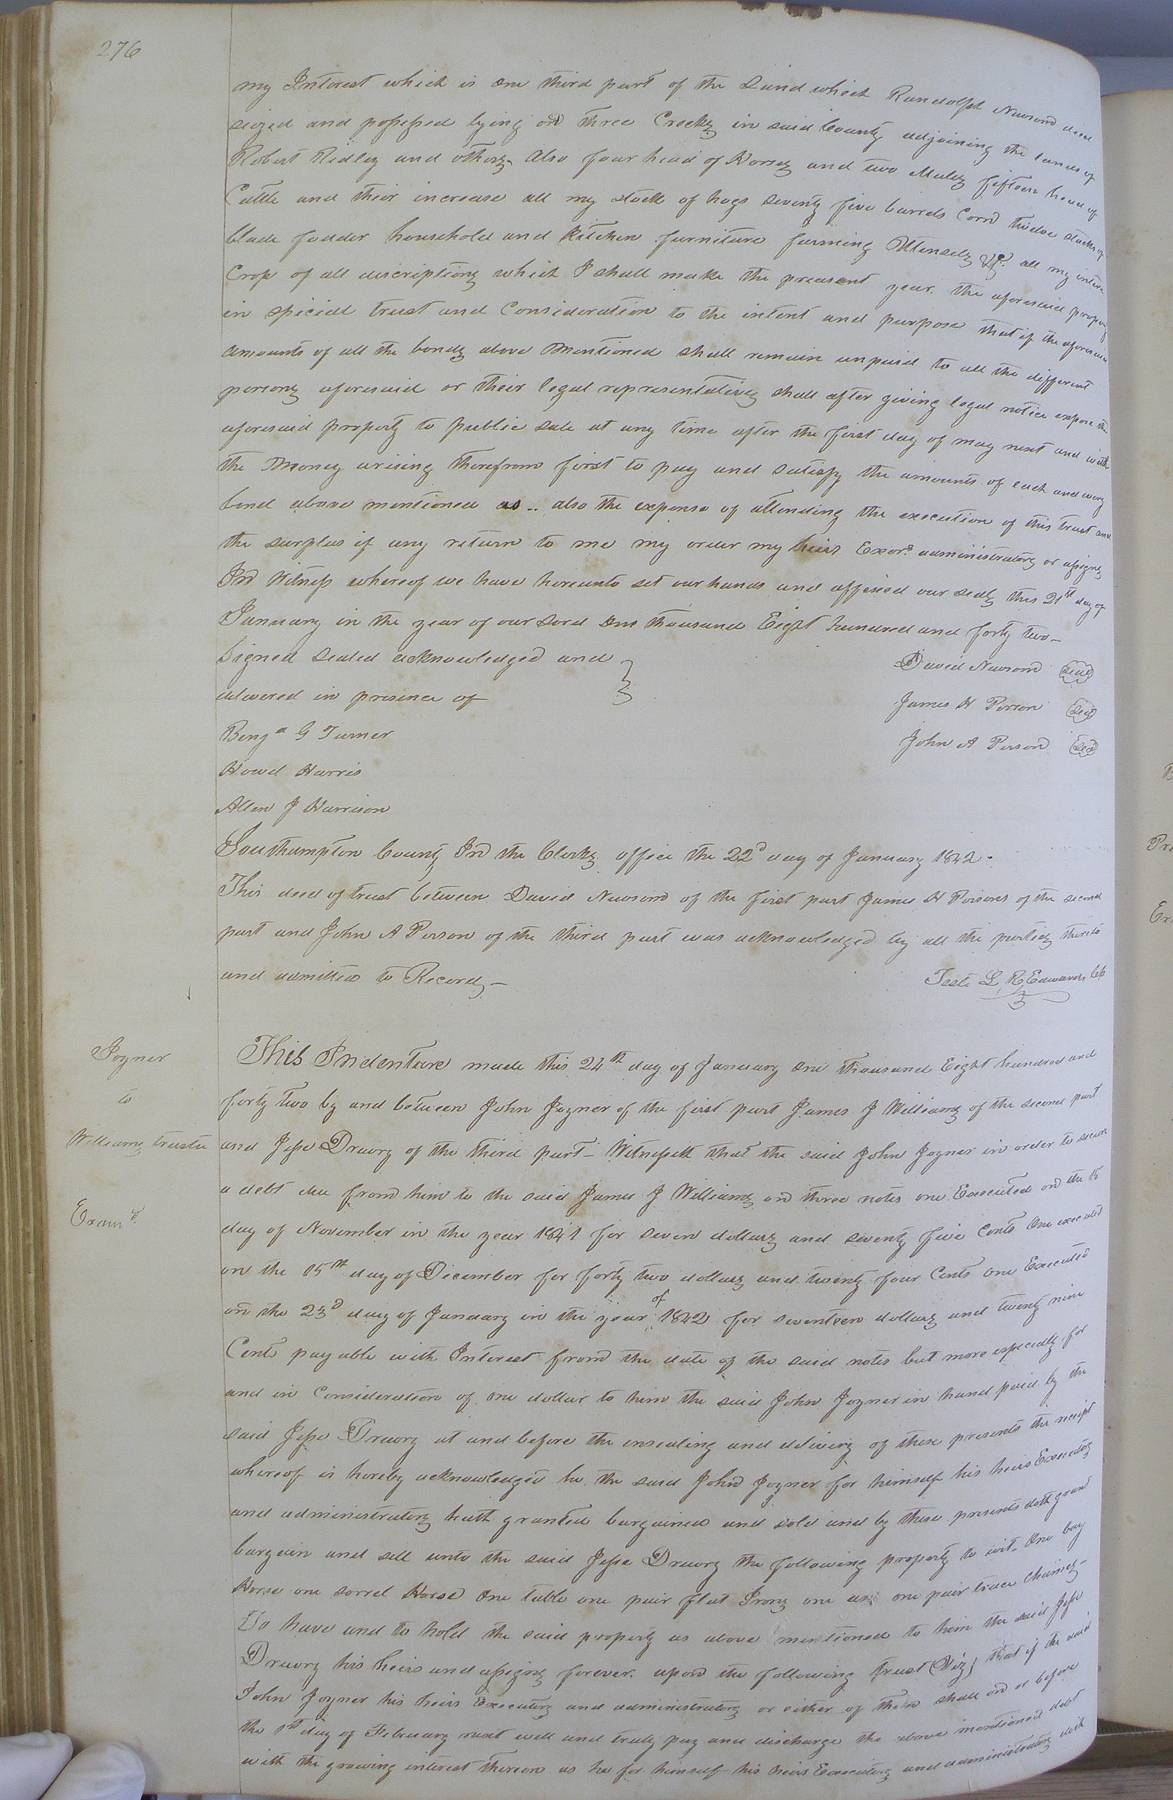 276
my Interest which is one third part of the Land which Randolph Newsom died
seized and possessed lying on three Creeks in said County adjoining the lands of
Robert Ridley and others, also four head of Horses and two Mules fifteen head of
Cattle and their increase all my stock of hogs seventy five barrels Corn twelve stacks of
blade fodder household and Kitchen furniture farming Utensels &c. all my intire
Crop of all discriptions which I shall make the preasent year. the aforesaid property
in special trust and Consideration to the intent and purpose that if the aforesaid
amounts of all the bonds above mentioned shall remain unpaid to all the different
persons aforesaid or their legal representatives shall after giving legal notice expose the
aforesaid property to public sale at any time after the first day of may next and with
the money arising therefrom first to pay and satisfy the amounts of each and every
bond above mentioned as .. also the expense of attending the execution of this trust and
the surplus if any return to me my order my heirs Exors administrators or assigns
In Witness whereof we have hereunto set our hands and affixed our seals this 21st day of
January in the year of our Lord one thousand Eight hundred and forty two—
Signed sealed acknowledged and
delivered in presence of
David Newsom Seal
James H Person Seal
John A Person Seal
Benja G Turner
Howel Harris
Allen J Harrison
Southampton County In the Clerks office the 22d day of January 1842.
This deed of trust between David Newsom of the first part James H Persons of the second
part and John A Person of the third part was acknowledged by all the parties thereto
and admitted to Record,—
Teste L R Edwards CC
Joyner
to
Williams trustee
Examd.
This Indenture made this 24th day of January one thousand Eight hundred and
forty two by and between John Joyner of the first part James J Williams of the second part
and Jesse Drewry of the third part— Witnesseth that the said John Joyner in order to secure
a debt due from him to the said James J Williams on three notes one Executed on the 15
day of November in the year 1841 for seven dollars and seventy five Cents One executed
on the 15th day of December for forty two dollars and twenty four Cents One Executed
on the 23d day of January in the year of 1842 for seventeen dollars and twenty nine
Cents payable with Interest from the date of the said notes but more especially for
and in Consideration of one dollar to him the said John Joyner in hand paid by the
said Jesse Drewry at and before the ensealing and delivery of these presents the receipt
whereof is hereby acknowledged he the said John Joyner for himself his heirs Executors
and administrators hath granted bargained and sold and by these presents doth grant
bargain and sell unto the said Jesse Drewry the following property to wit. One bay
Horse one sorrel Horse One table one pair flat Irons one axe one pair trace chaines—
To have and to hold the said property as above mentioned to him the said Jesse
Drewry his heirs and assigns forever. upon the following trust (Viz) that if the said
John Joyner his heirs Executors and administrators or either of them shall on or before
the 1st day of February next well and truly pay and discharge the above mentioned debt
with the growing interest thereon as he for himself his heirs Executors and administrators doth